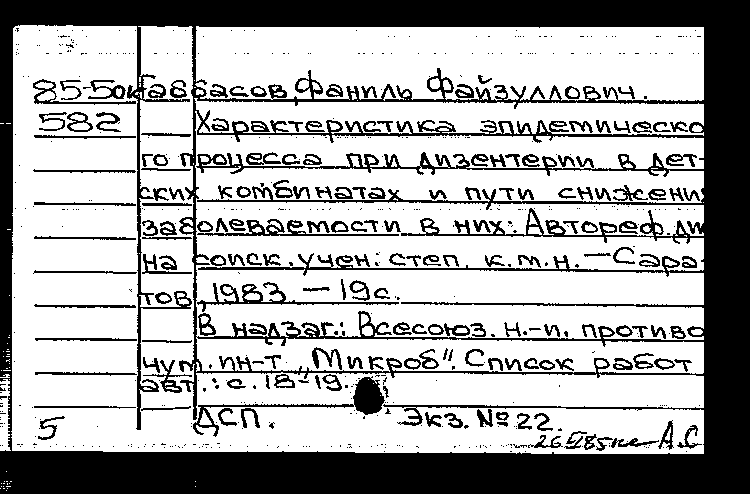 85-5ок Габбасов, Фаниль Файзуллович.
582 Характеристика эпидемическо
го процесса при дизентерии в дет-
ских комбинатах и пути снижения
заболеваемости в них: Автореф. ди
на соиск. учен. степ. к.м.н. — Сара-
тов, 1983. — 19с.
В надзаг.: Всесоюз. н.-и. противо
чум. ин-т „Микроб". Список работ
авт.: с. 18-19.
ДСП. Экз. №22.
5
А.С